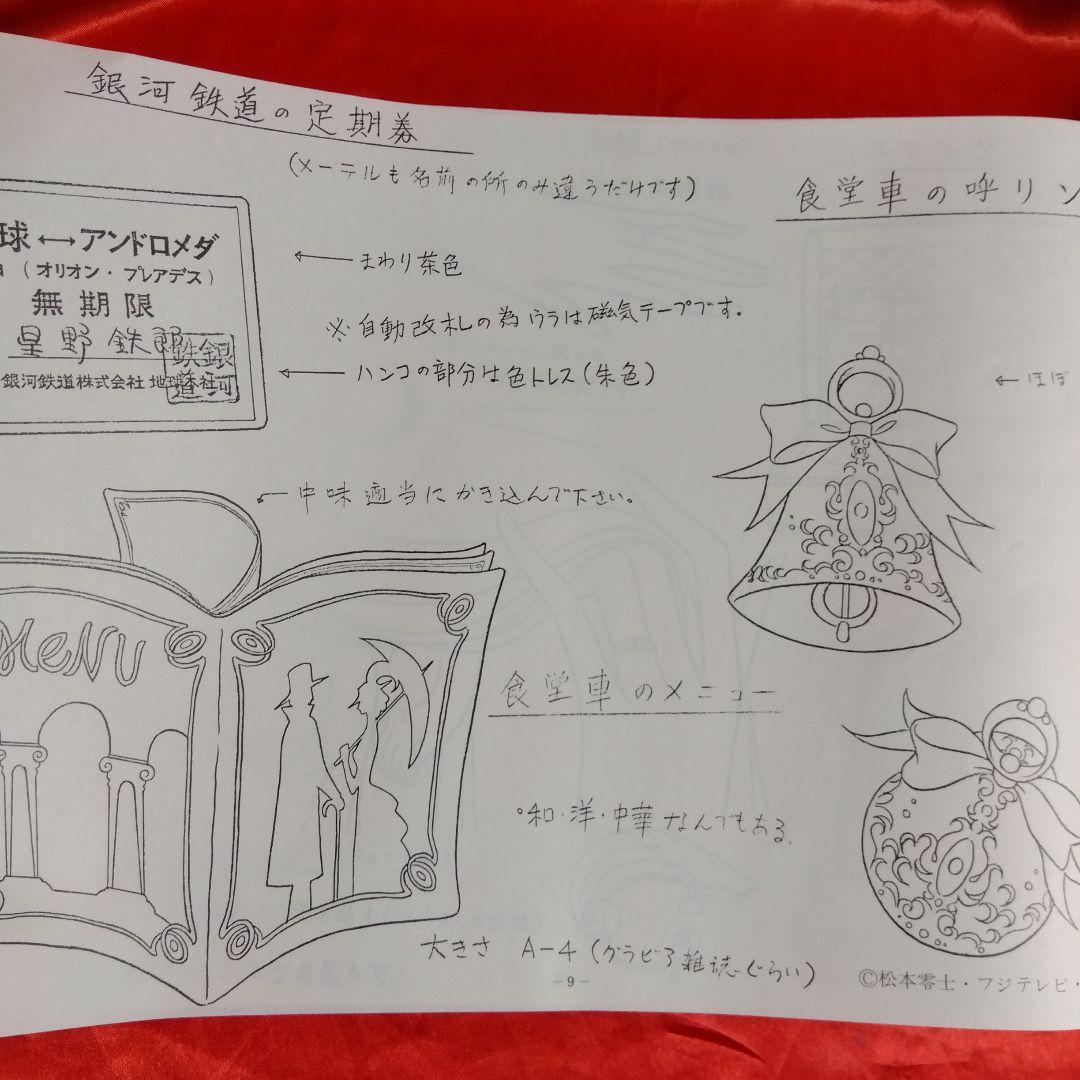 銀河鉄道の定期券
(メーテルも名前の所のみ違うだけです)
食堂車の呼リン
球←→アンドロメダ
(オリオン・プレアデス)
無期限
星野鉄郎
銀河鉄道株式会社 地球本社
銀河
鉄道
←まわり茶色
※自動改札の為ウラは磁気テープです。
←ハンコの部分は色トレス(朱色)
←ほぼ
中味適当にかき込んで下さい。
MeNU
食堂車のメニュー
°和・洋・中華なんでもある。
大きさ A-4(グラビア雑誌ぐらい)
-9-
©松本零士・フジテレビ・